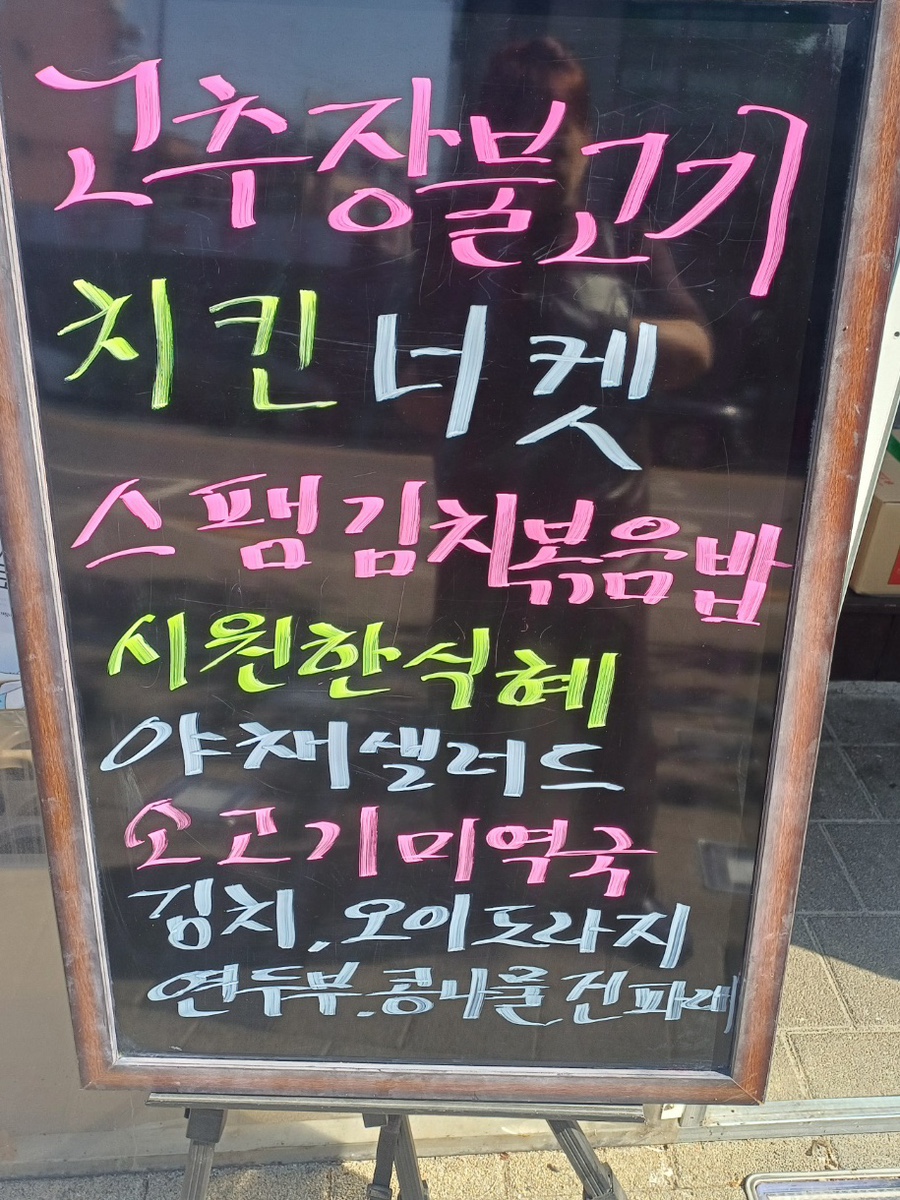 고추장불고기
치킨너켓
스팸김치볶음밥
시원한식혜
야채샐러드
소고기미역국
김치, 오이도라지
연두부.콩나물전파래